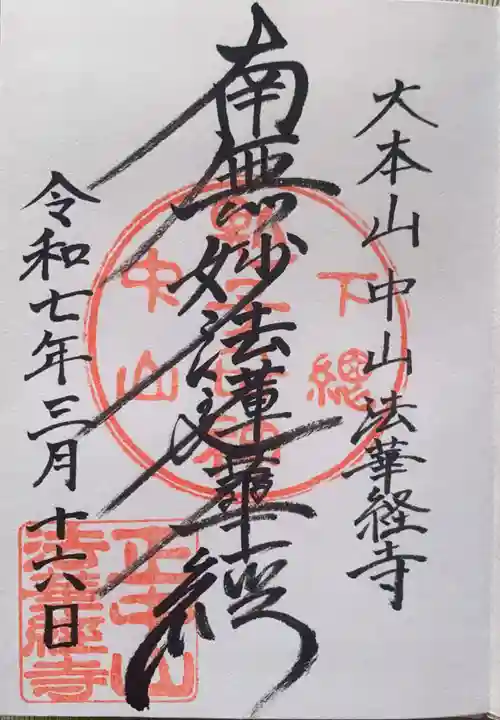 大本山中山法華経寺
南無妙法蓮華経
令和七年三月十六日
下總
中山
正中山
法華經寺